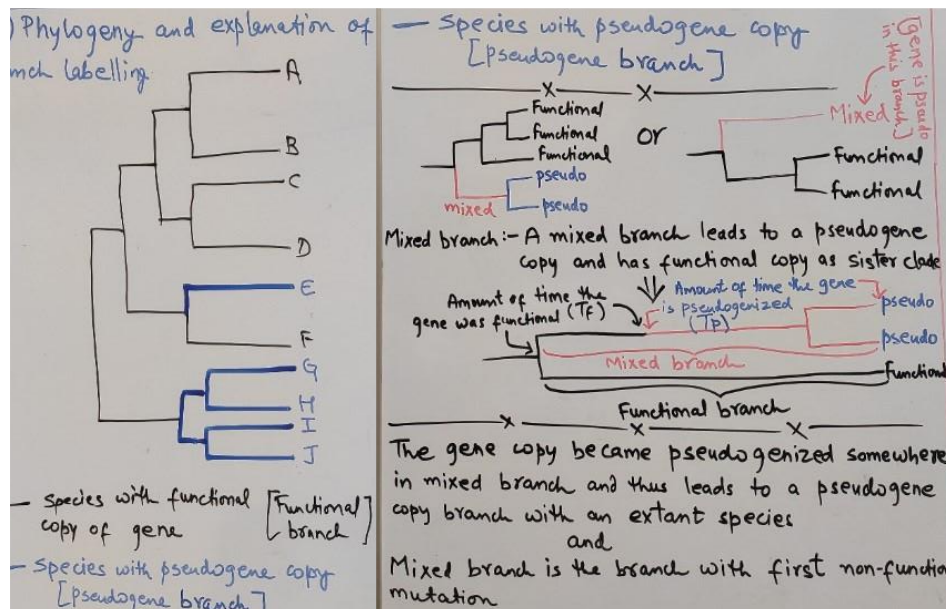 ) Phylogeny and explanation of
nch labelling
A
B
C
D
E
F
G
H
I
J
— Species with functional [Functional
copy of gene branch]
— Species with pseudogene copy
[pseudogene branch]
— Species with pseudogene copy
[pseudogene branch]
[gene is pseudo
in this branch]
x x
Functional
Functional
Functional
pseudo
pseudo
mixed
or
Mixed
Functional
Functional
Mixed branch:- A mixed branch leads to a pseudogene
copy and has functional copy as sister clade
Amount of time the
gene was functional (TF)
Amount of time the gene
is pseudogenized
(TP)
pseudo
pseudo
Mixed branch
Functional
Functional branch
x x x
The gene copy became pseudogenized somewhere
in mixed branch and thus leads to a pseudogene
copy branch with an extant species
and
Mixed branch is the branch with first non-function
mutation